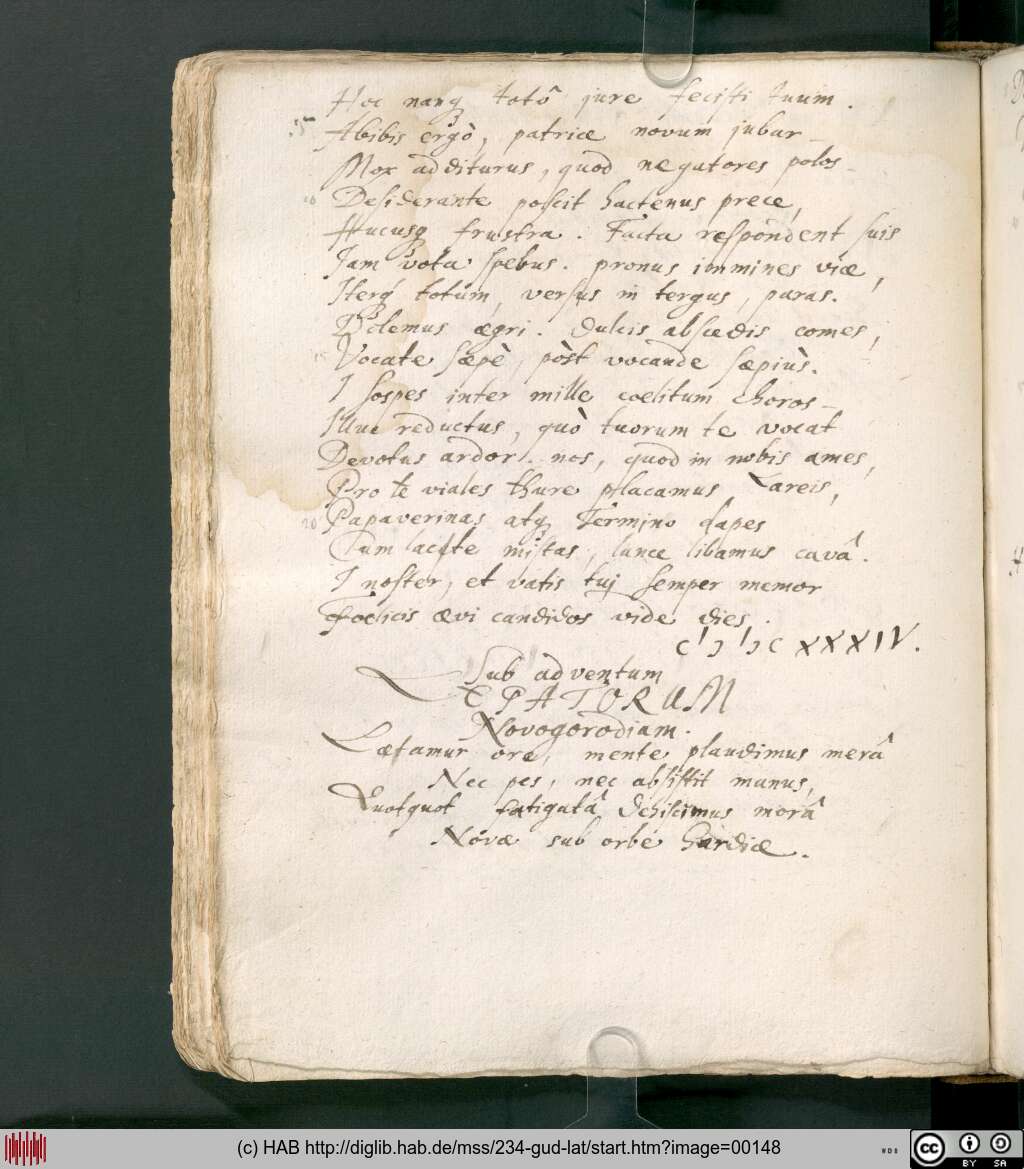 Hoc nanq̃ totô jure fecisti tuum.
Abibis ergò, patriæ novum jubar
Mox additurus, quod negatores polos
Desiderante poscit hactenus prece,
Hucusq̃ frustra. Facta respondent suis
Iam vota spebus. pronus immines viæ,
Iterq́ totum, versus in tergus, paras.
Dolemus ægri. dulcis abscedis comes,
Vocate sæpè, pòst vocande sæpiùs.
I sospes inter mille coelitum choros
Illuc reductus, quò tuorum te vocat
Devotus ardor. nos, quod in nobis ames,
Pro te viales thure placamus Lareis,
20 Papaverinas atq̃ Termino dapes
Cum lacte mistas, lance libamus cavâ.
I noster, et vatis tuj semper memor
Foelicis ævi candidos vide dies.
CIↃIↃC XXXIV.
Sub adventum
LEGATORUM
Novogorodiam.
Lætamur ore, mente plaudimus merâ
Nec pes, nec absistit manus,
Quotquot fatigatâ dehiscimus morâ
Novæ sub orbe Gardiæ.
(c) HAB http://diglib.hab.de/mss/234-gud-lat/start.htm?image=00148
cc BY SA